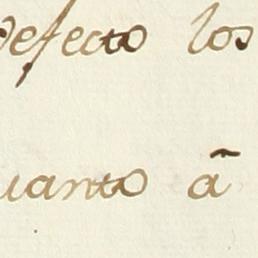 defecto los
uanto ā